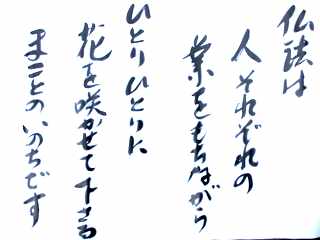 仏法は
人それぞれの
業をもちながら
ひとりひとりに
花を咲かせて下さる
まことのいのちです